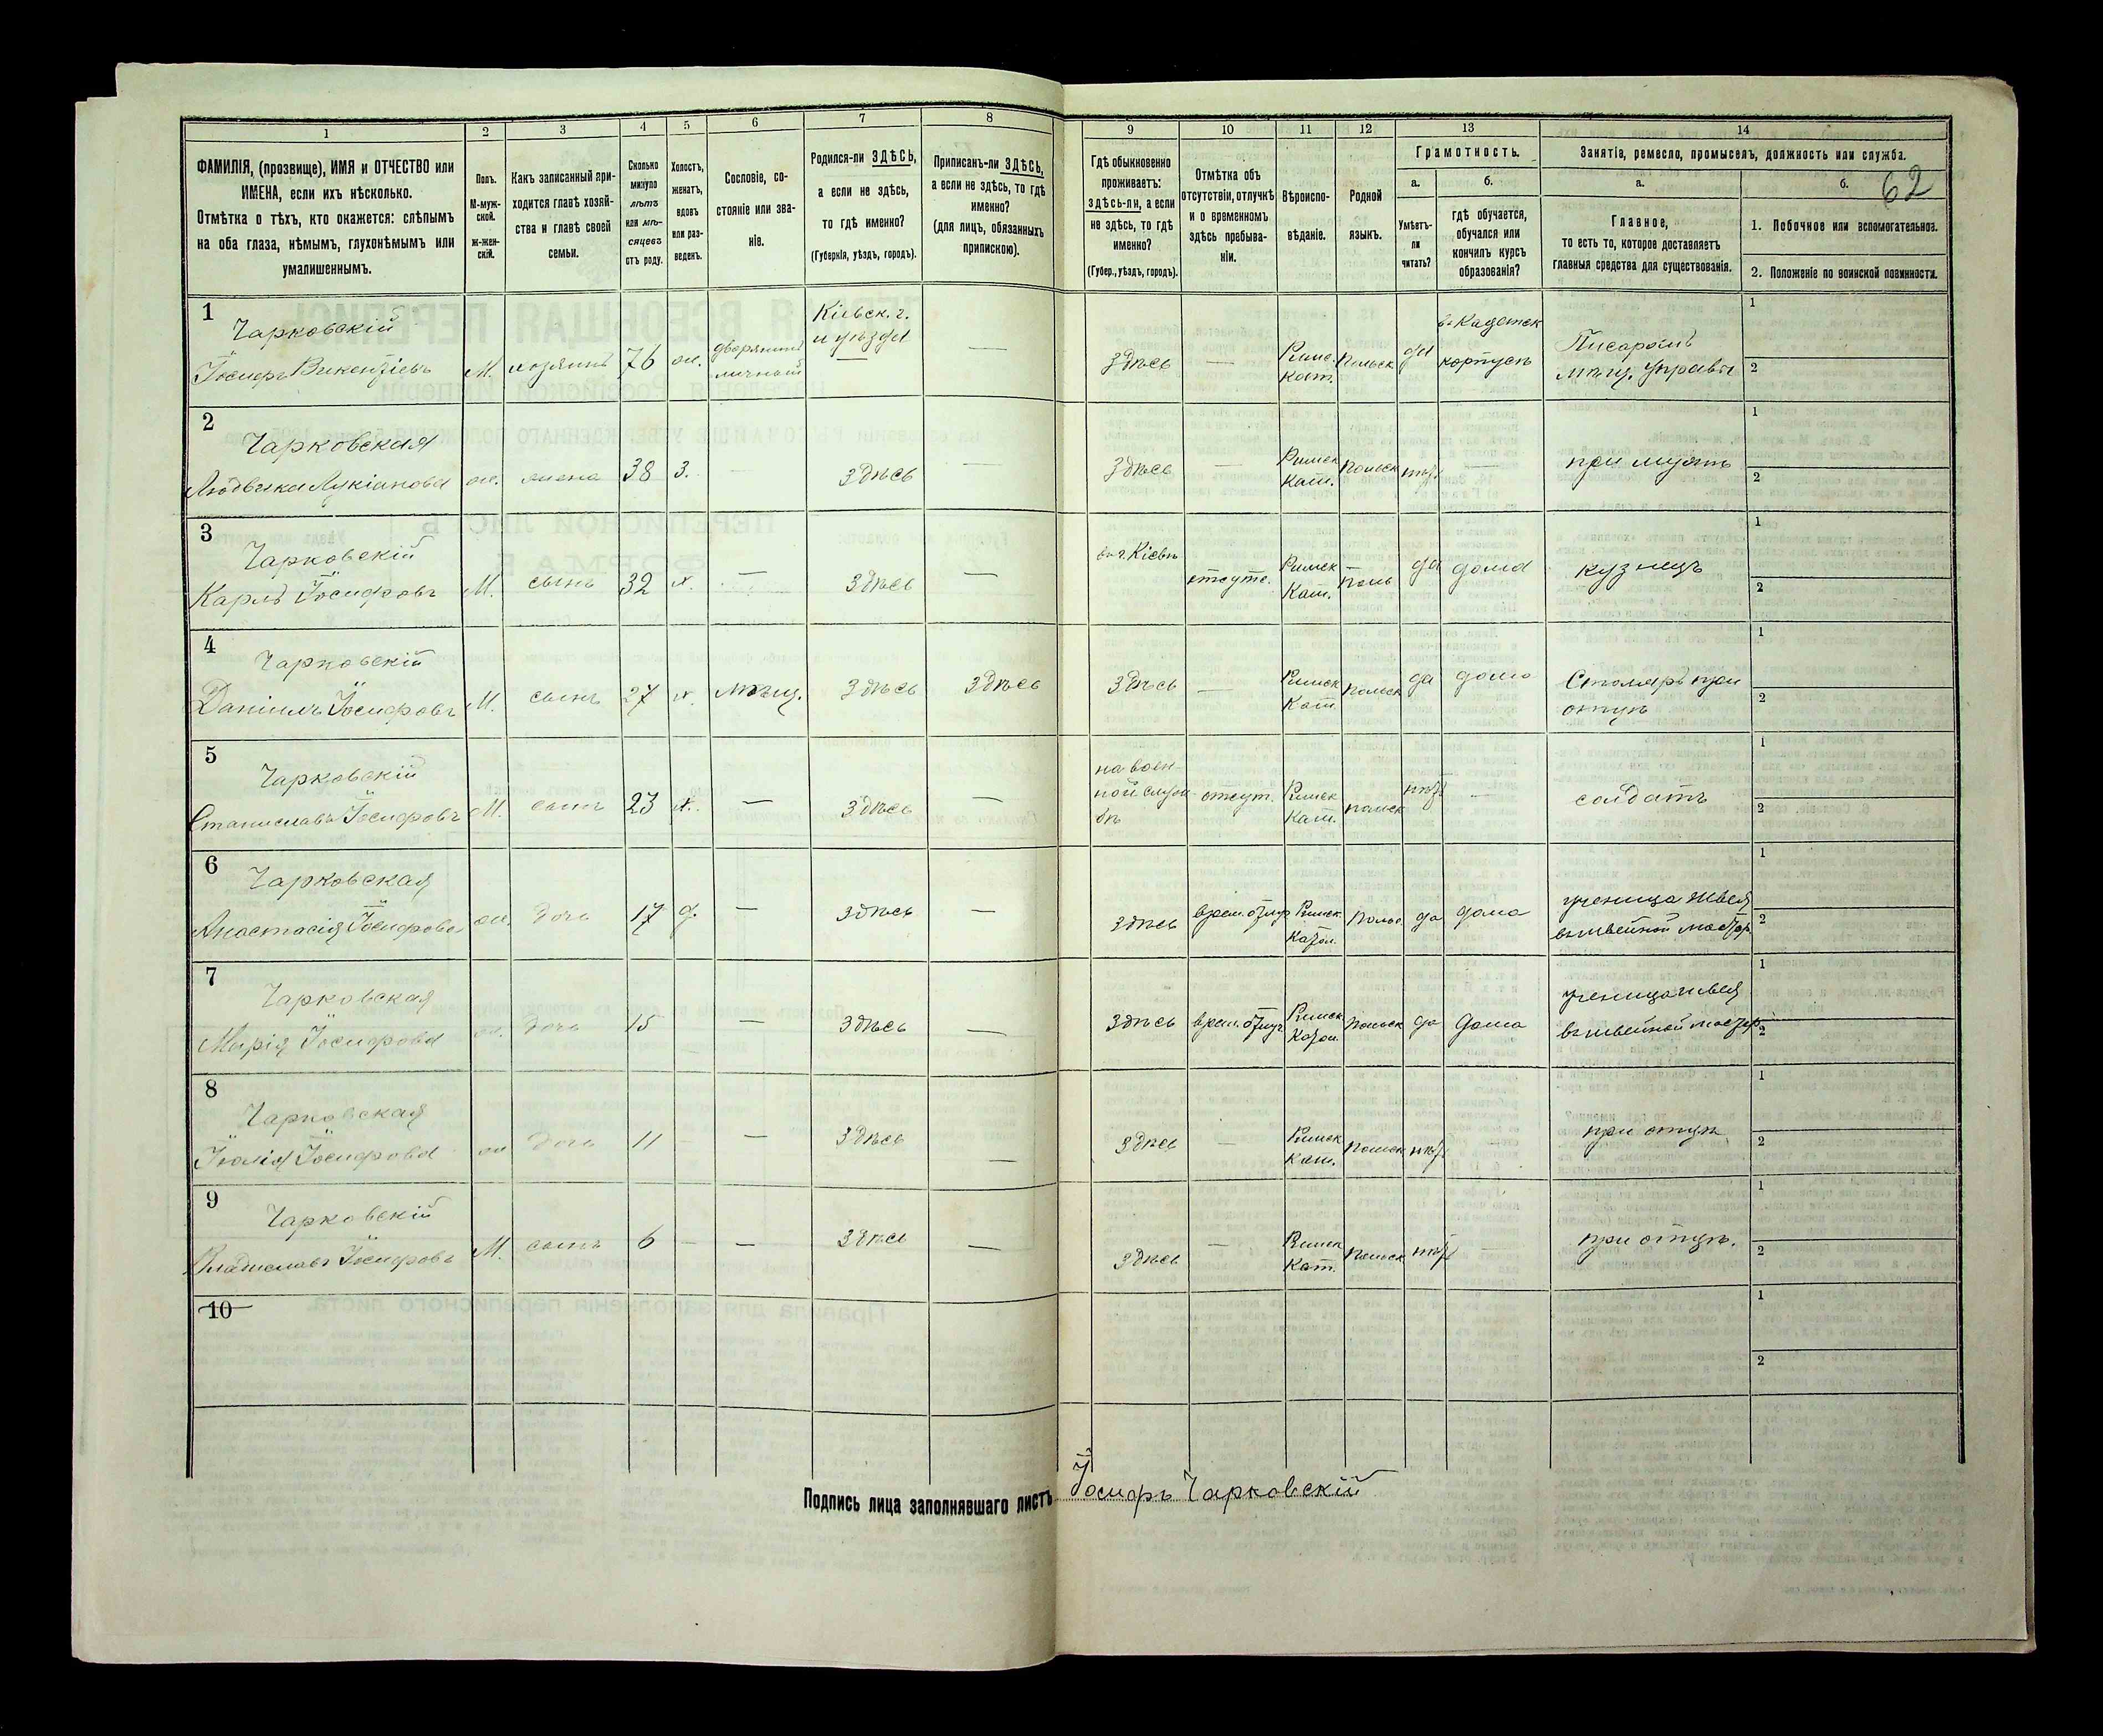 1 2 3 4 5 6 7 8 9 10 11 12 13 14
62
ФАМИЛІЯ, (прозвище), ИМЯ и ОТЧЕСТВО или
ИМЕНА, если ихъ нѣсколько.
Отмѣтка о тѣхъ, кто окажется: слѣпымъ
на оба глаза, нѣмымъ, глухонѣмымъ или
умалишеннымъ.
Полъ.
М-муж-
ской.
ж-жен-
скій.
Какъ записанный при-
ходится главѣ хозяй-
ства и главѣ своей
семьи.
Сколько
минуло
лѣтъ
или мѣ-
сяцевъ
отъ роду.
Холостъ,
женатъ,
вдовъ
или раз-
веденъ.
Сословіе, со-
стояніе или зва-
ніе.
Родился-ли ЗДѢСЬ,
а если не здѣсь,
то гдѣ именно?
(Губернія, уѣздъ, городъ).
Приписанъ-ли ЗДѢСЬ,
а если не здѣсь, то гдѣ
именно?
(для лицъ, обязанныхъ
припискою).
Гдѣ обыкновенно
проживаетъ:
здѣсь-ли, а если
не здѣсь, то гдѣ
именно?
(Губер., уѣздъ, городъ).
Отмѣтка объ
отсутствіи, отлучкѣ
и о временномъ
здѣсь пребыва-
ніи.
Вѣроиспо-
вѣданіе.
Родной
языкъ.
Грамотность.
а.
Умѣетъ-
ли
читать?
б.
гдѣ обучается,
обучался или
кончилъ курсъ
образованія?
Занятіе, ремесло, промыселъ, должность или служба.
а.
Главное,
то есть то, которое доставляетъ
главныя средства для существованія.
б.
1. Побочное или вспомогательное.
2. Положеніе по воинской повинности.
1 Чарковскій
Іосифъ Викентіевъ М. хозяинъ 76 ж. дворянинъ личный Кіевск. г. и уѣзда — здѣсь — Римс. Кат. Польск да въ Кадетск корпусѣ Писаромъ мѣщ. Управы 1 2
2 Чарковская
Людвика Лукіанова ж. жена 38 З. — здѣсь — здѣсь — Римск Кат. Польск нѣт. — при мужѣ 1 2
3 Чарковскій
Карлъ Іосифовъ М. сынъ 32 х. — здѣсь — въ г. Кіевѣ отсутс. Римск Кат. Поль да дома кузнецъ 1 2
4 Чарковскій
Даніилъ Іосифовъ М. сынъ 27 х. мѣщ. здѣсь здѣсь здѣсь — Римск Кат. Польск да дома Столяръ при отцѣ 1 2
5 Чарковскій
Станиславъ Іосифовъ М. сынъ 23 х. — здѣсь — на воен-
ной служ-
бѣ отсут. Римск Кат. польск нѣт — солдатъ 1 2
6 Чарковская
Анастасія Іосифова ж. дочь 17 д. — здѣсь — здѣсь врем. отлуч Римск. Катол. Польс. да дома ученица швея
въ швейной мастер 1 2
7 Чарковская
Марія Іосифова ж. дочь 15 — здѣсь — здѣсь врем. отлуч Римск Катол. Польск да дома ученица швея
въ швейной мастер 1 2
8 Чарковская
Юлія Іосифова ж дочь 11 — — здѣсь — здѣсь — Римск Кат. Польск нѣт — при отцѣ 1 2
9 Чарковскій
Владиславъ Іосифовъ М. сынъ 6 — — здѣсь — здѣсь — Римск Кат. Польск нѣт — при отцѣ. 1 2
10 1 2
Подпись лица заполнявшаго листъ Іосифъ Чарковскій